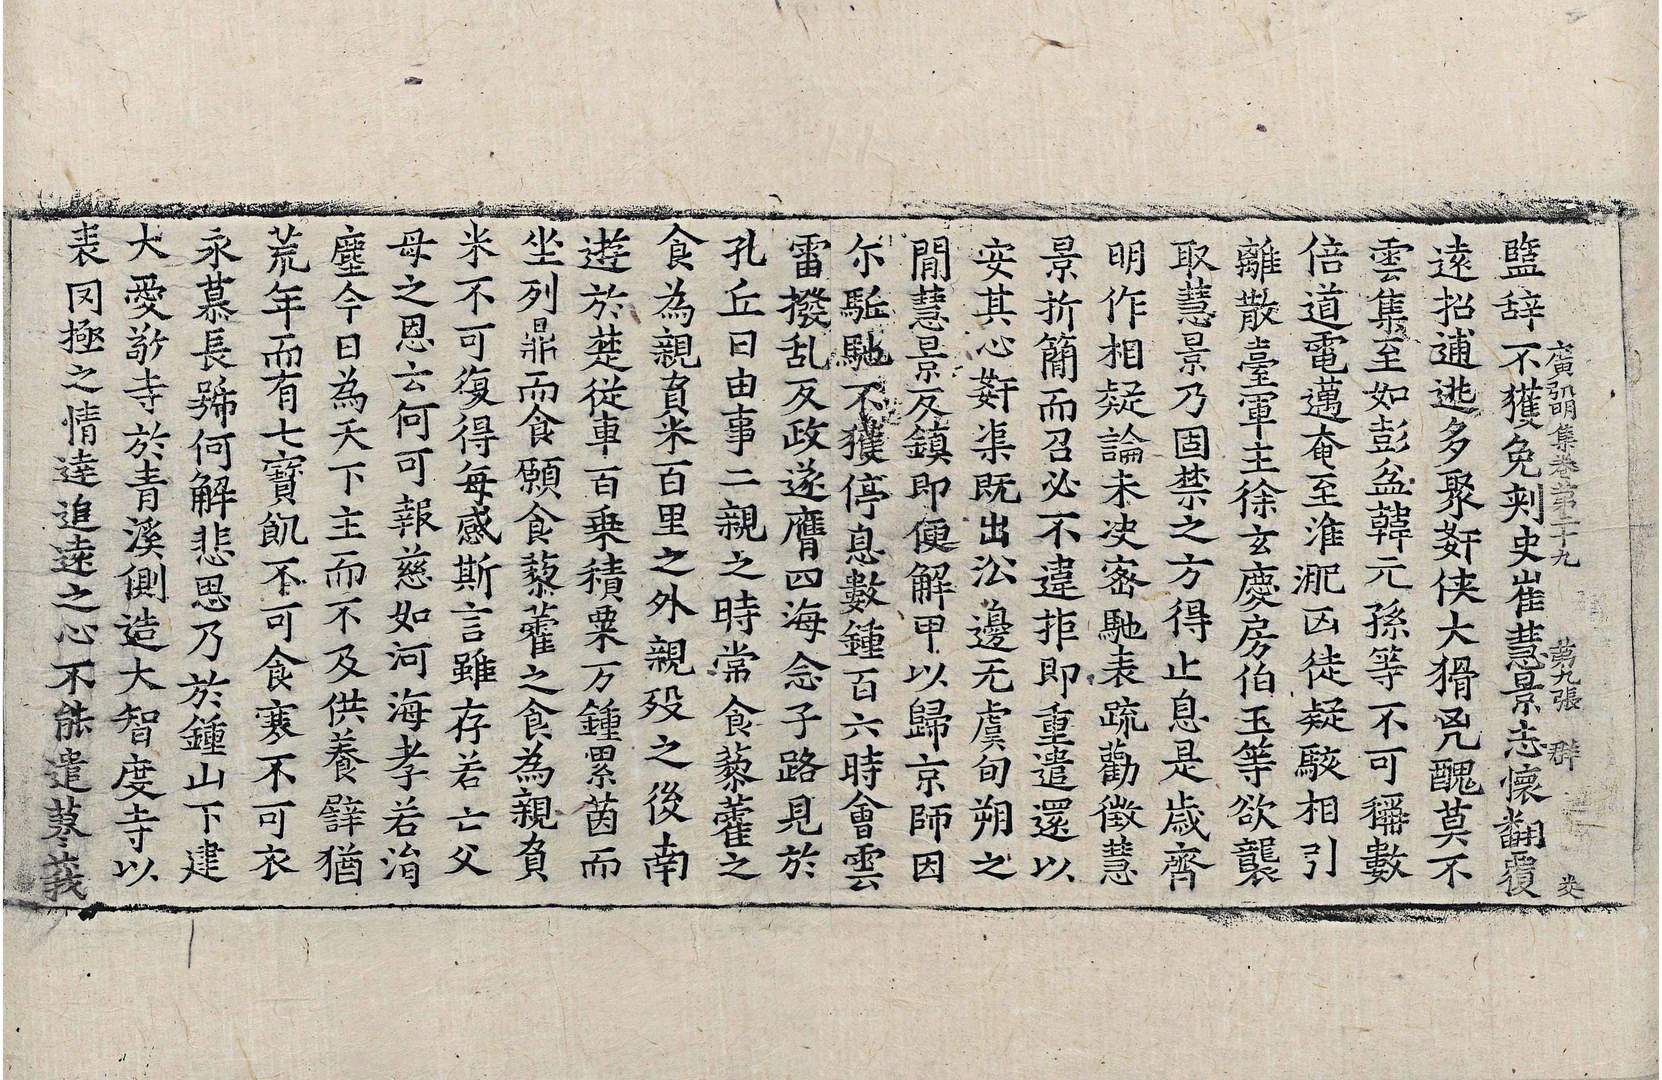 廣弘明集卷第二十九 第九張 群
盬辞不獲免刾史崔慧景志懷翻覆
遠招逋逃多聚姧侠大猾兇醜莫不
雲集至如彭盆韓元孫等不可稱數
倍道電邁奄至淮淝凶徒疑駭相引
離散臺軍主徐玄慶房伯玉等欲襲
取慧景乃固禁之方得止息是歳齊
明作相疑論未决密馳表疏勸徴慧
景折簡而召必不違拒即重遣還以
安其心姧渠既出㳂邊无虞旬朔之
間慧景反鎮即便解甲以歸京師因
尓駈馳不獲停息數鍾百六時會雲
雷撥乱反政遂膺四海念子路見於
孔丘曰由事二親之時常食藜藿之
食為親負米百里之外親殁之後南
遊於楚從車百乗積粟万鍾累茵而
坐列鼎而食願食藜藿之食為親負
米不可復得每感斯言雖存若亡父
母之恩云何可報慈如河海孝若㳙
塵今日為天下主而不及供養譬猶
荒年而有七寳飢不可食寒不可衣
永慕長號何解悲思乃於鍾山下建
大愛敬寺於青溪側造大智度寺以
表罔極之情逹追逺之心不能遣蓼莪